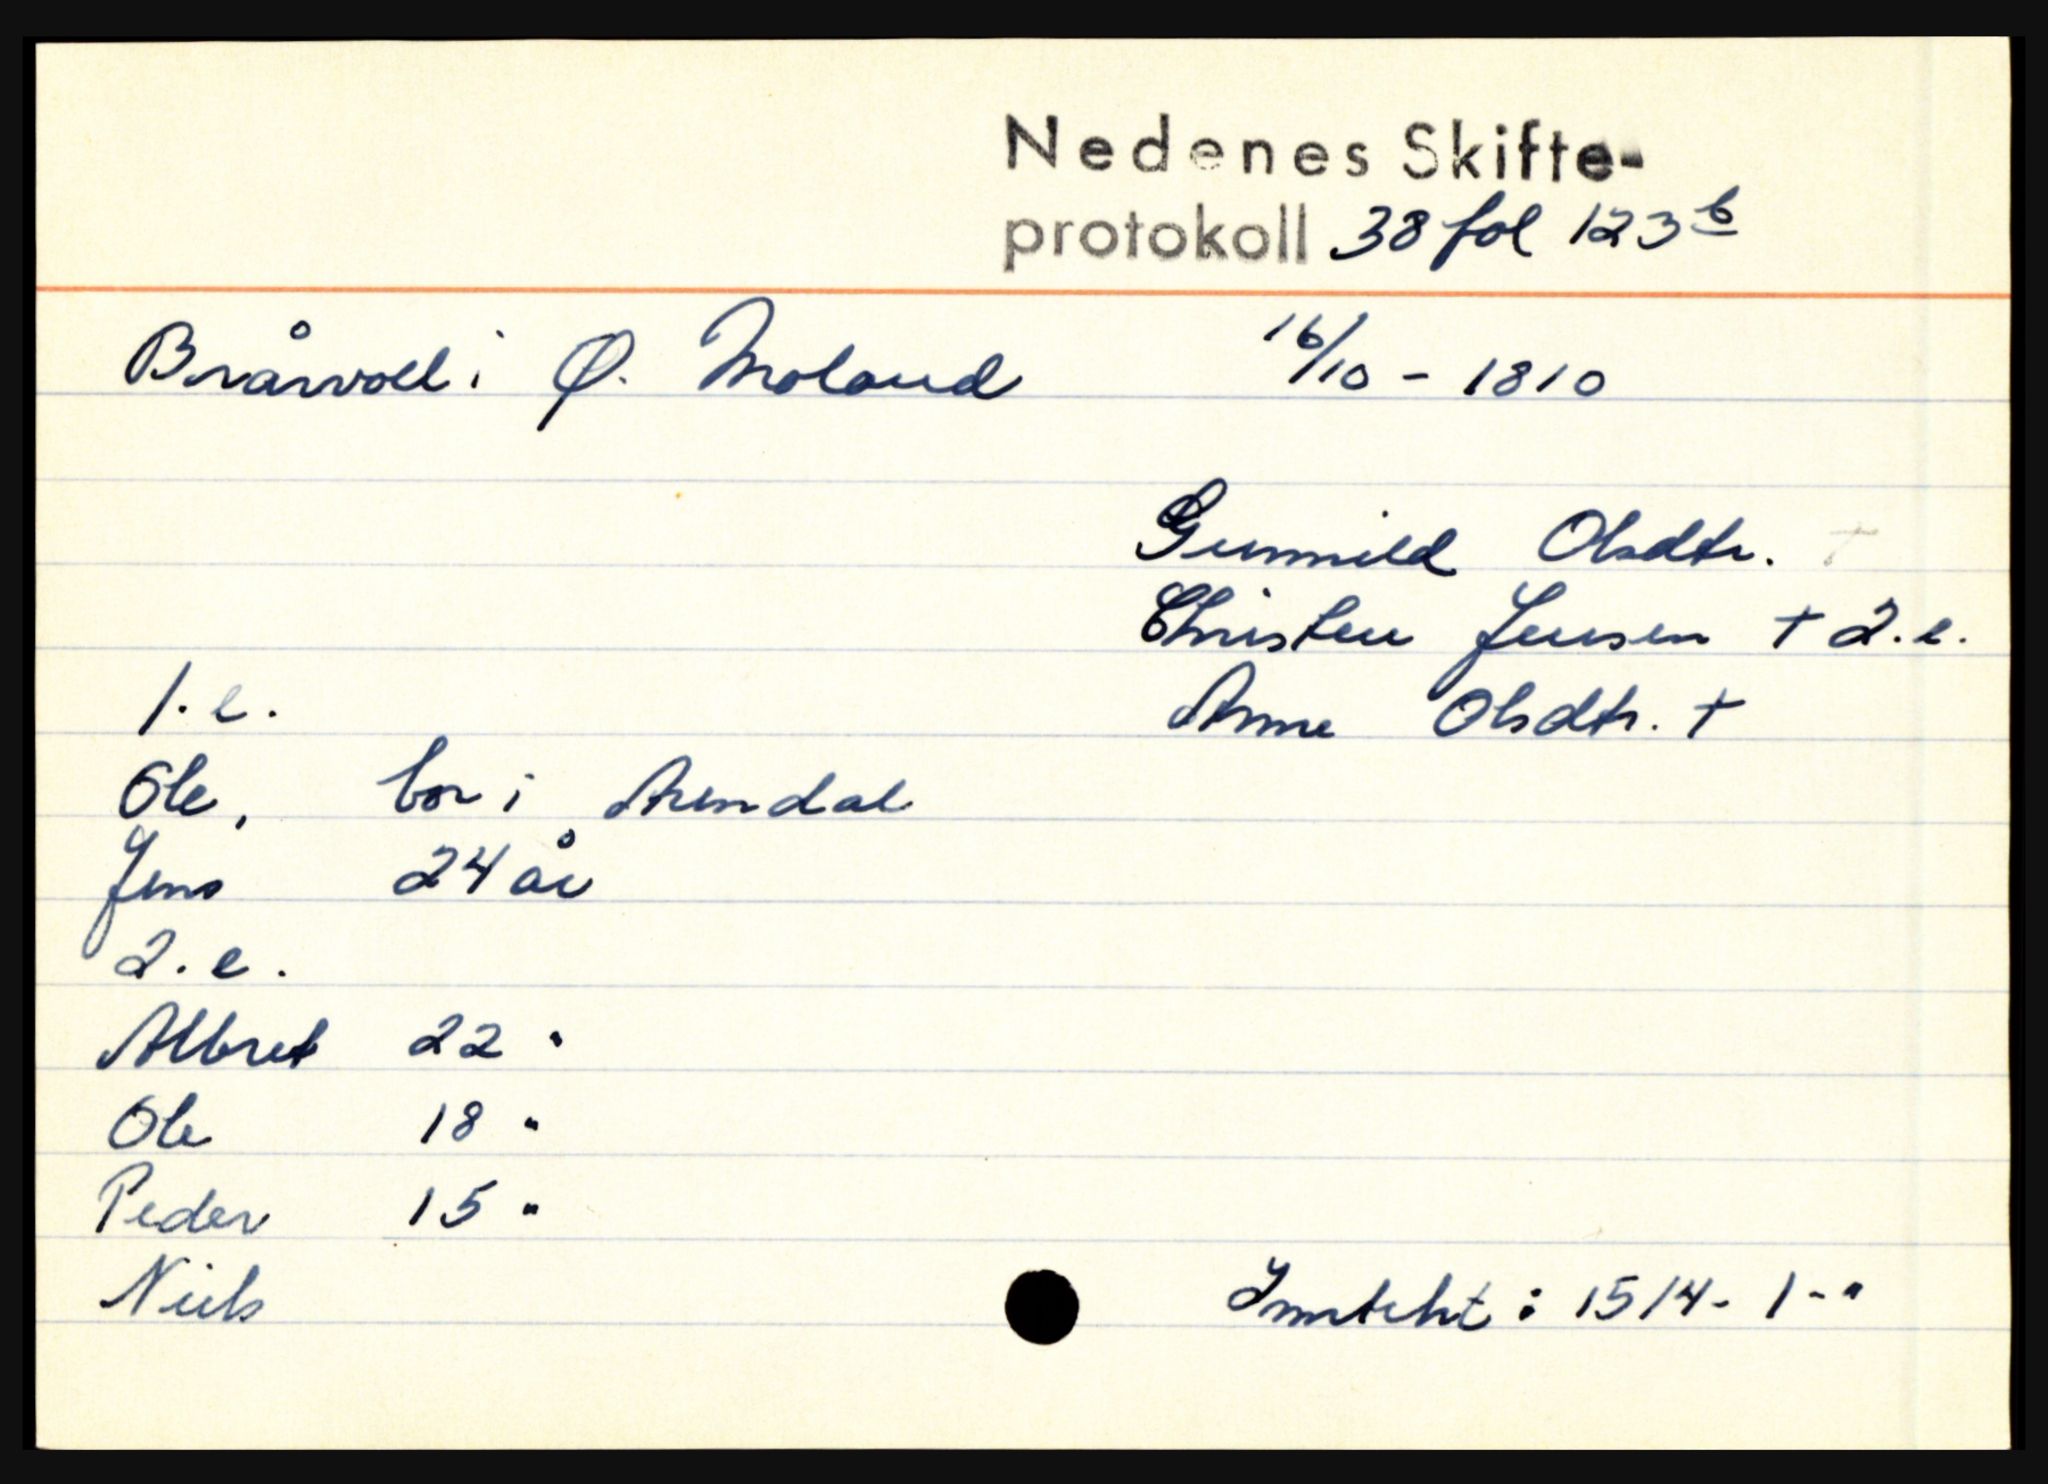 Nedenes Skifte-
protokoll 38 fol 123b
Bråvoll i Ø. Moland 16/10 - 1810
Gunnild Olsdtr. †
Christen Jensen † 2.e.
1.e. Anne Olsdtr. †
Ole, bor i Arendal
Jens 24 år
2.e.
Albret 22 "
Ole 18 "
Peder 15 "
Niels Inntekt: 1514 - 1 - "